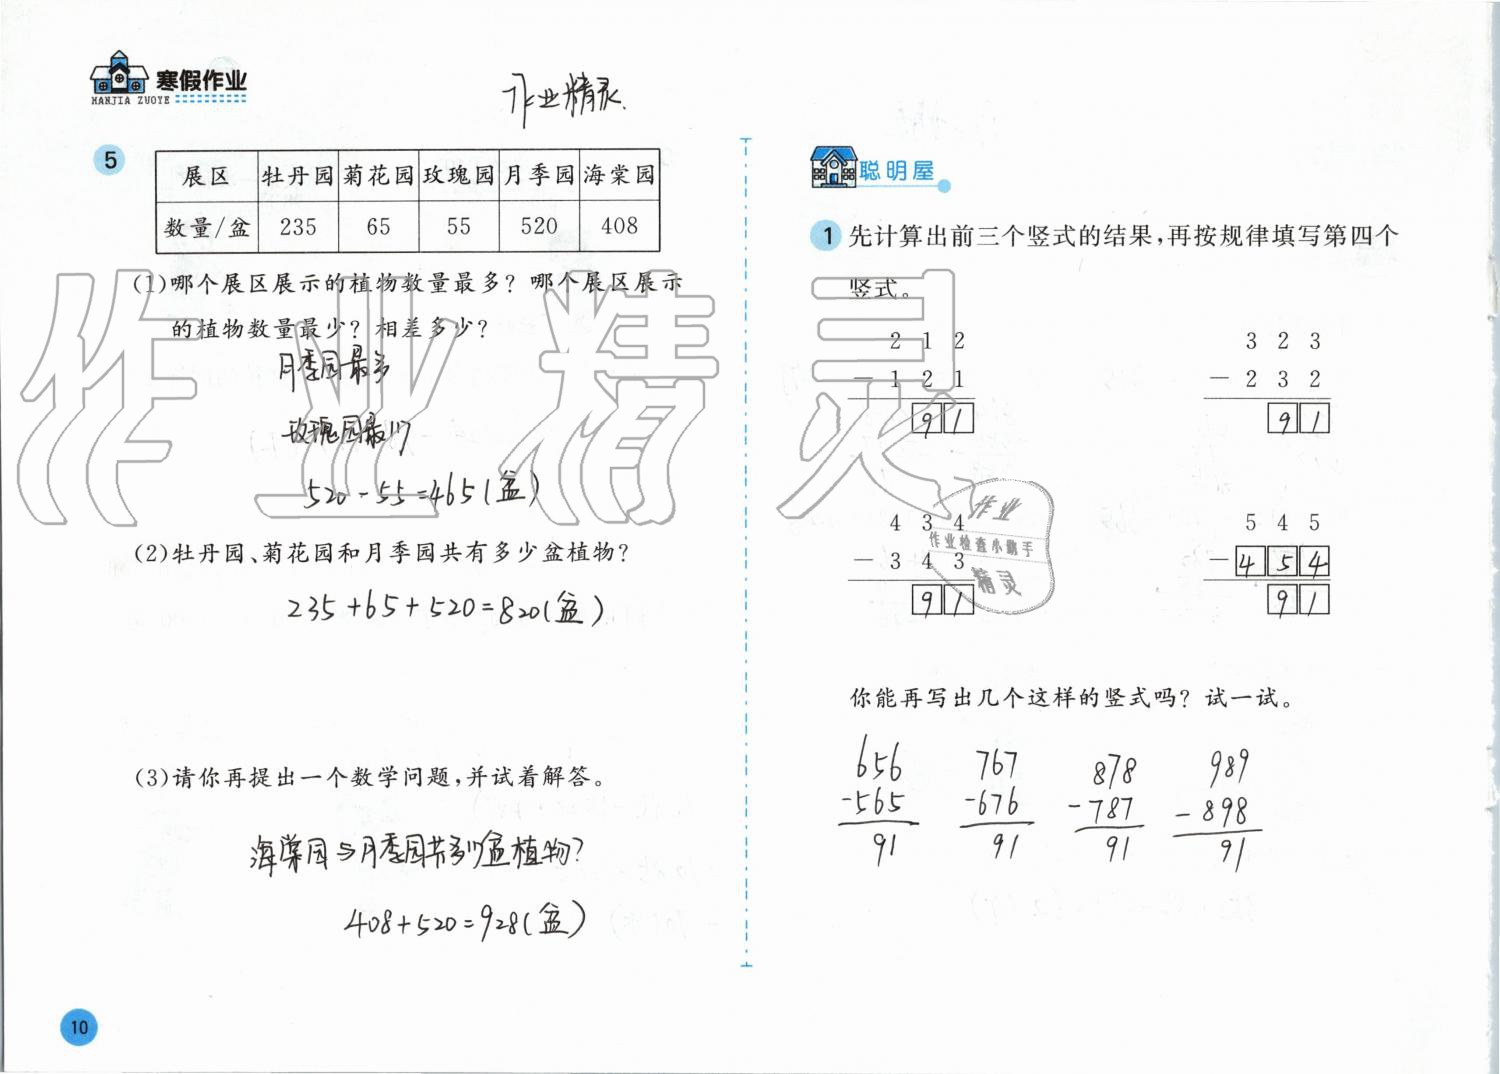 寒假作业
HANJIA ZUOYE
作业精灵
5
展区 牡丹园 菊花园 玫瑰园 月季园 海棠园
数量/盆 235 65 55 520 408
(1)哪个展区展示的植物数量最多？哪个展区展示
的植物数量最少？相差多少？
月季园最多
玫瑰园最少
520-55=465(盆)
(2)牡丹园、菊花园和月季园共有多少盆植物？
235+65+520=820(盆)
(3)请你再提出一个数学问题,并试着解答。
海棠园与月季园共多少盆植物?
408+520=928(盆)
10
聪明屋
1 先计算出前三个竖式的结果,再按规律填写第四个
竖式。
2 1 2 3 2 3
－1 2 1 －2 3 2
9 1 9 1
4 3 4 5 4 5
－3 4 3 －4 5 4
9 1 9 1
你能再写出几个这样的竖式吗？试一试。
656 767 878 989
-565 -676 -787 -898
91 91 91 91
作业精灵
作业
作业检查小帮手
精灵